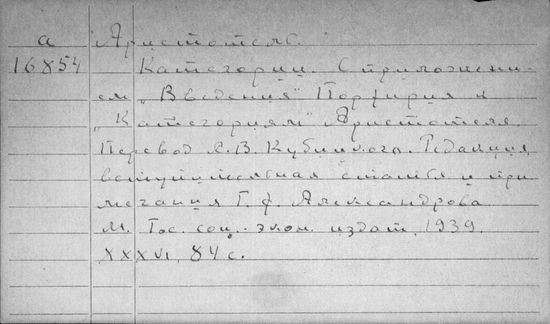 а Аристотель.
16854 Категории. С приложени-
ем „Введения" Порфирия к
„Категориям" Аристотеля.
Перевод А.В. Кубицкого. Редакция,
вступительная статья и при
мечания Г.Ф. Александрова
М. Гос. соц.-экон. издат, 1939.
XXXVI, 84 с.